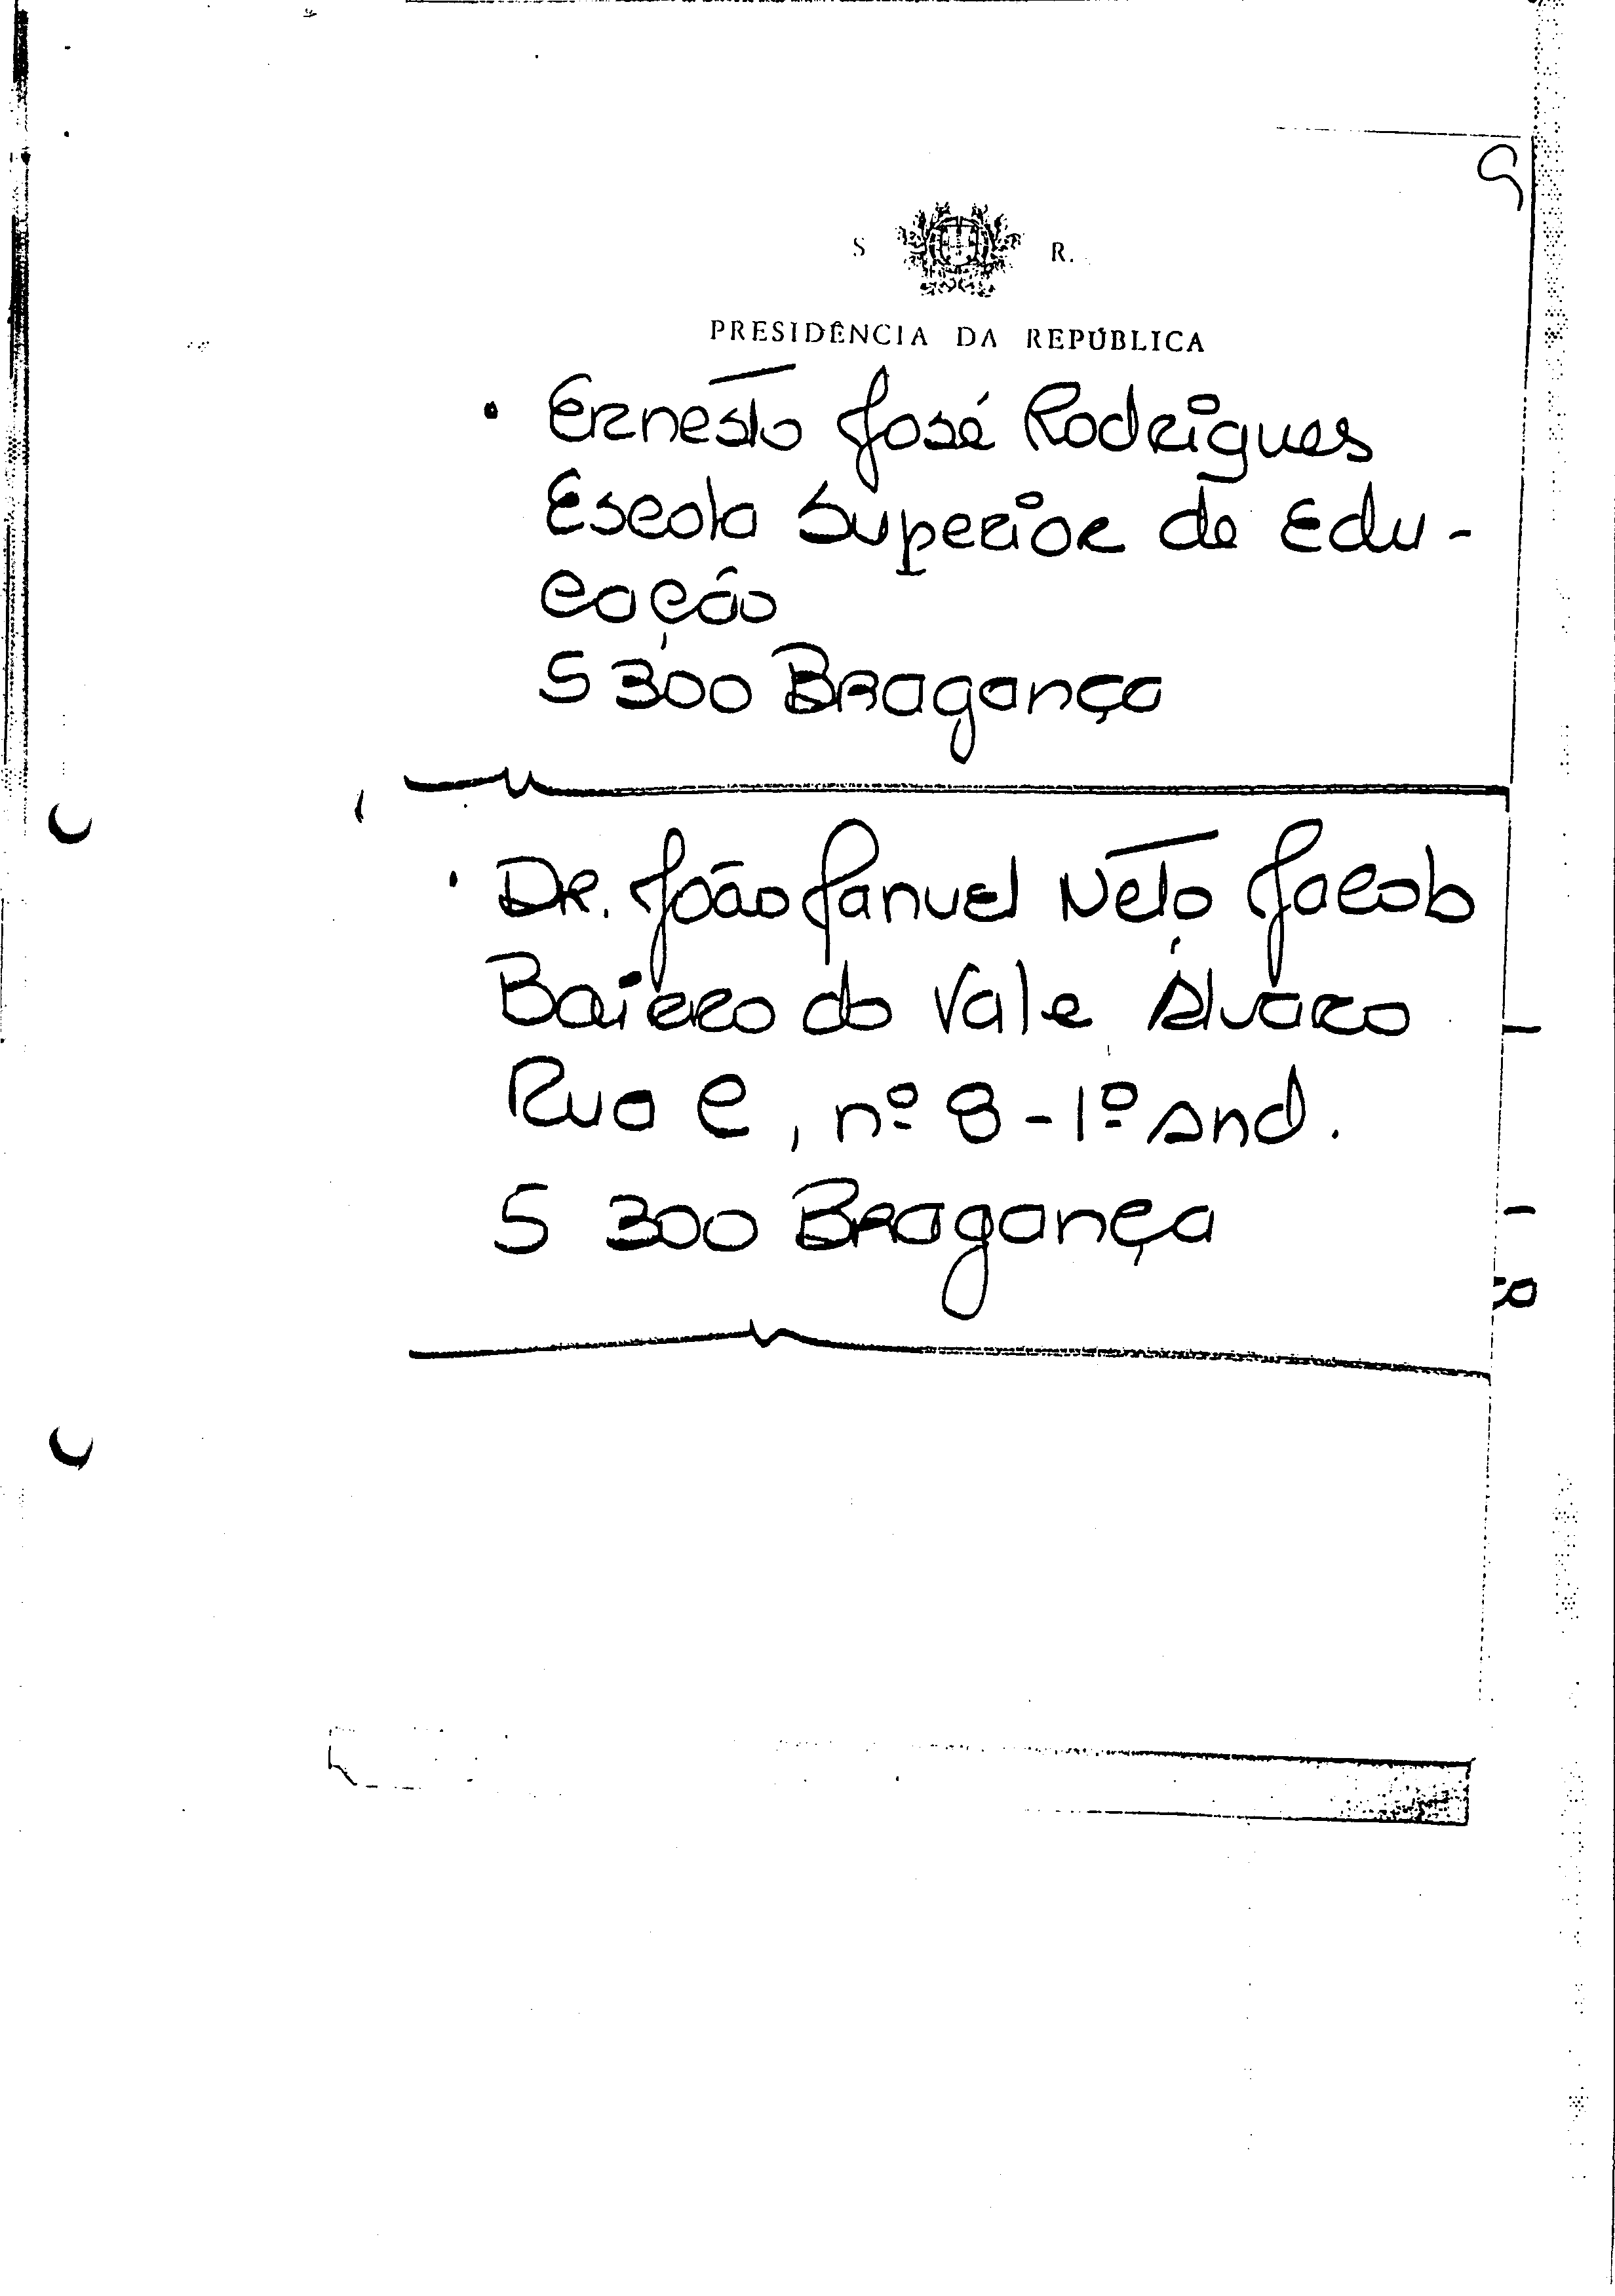 S R.
PRESIDÊNCIA DA REPÚBLICA
• Ernesto José Rodrigues
Escola Superior de Edu-
cação
5300 Bragança
• Dr. João Manuel Neto Jacob
Bairro do Vale Álvaro
Rua C, nº 8 - 1º And.
5300 Bragança